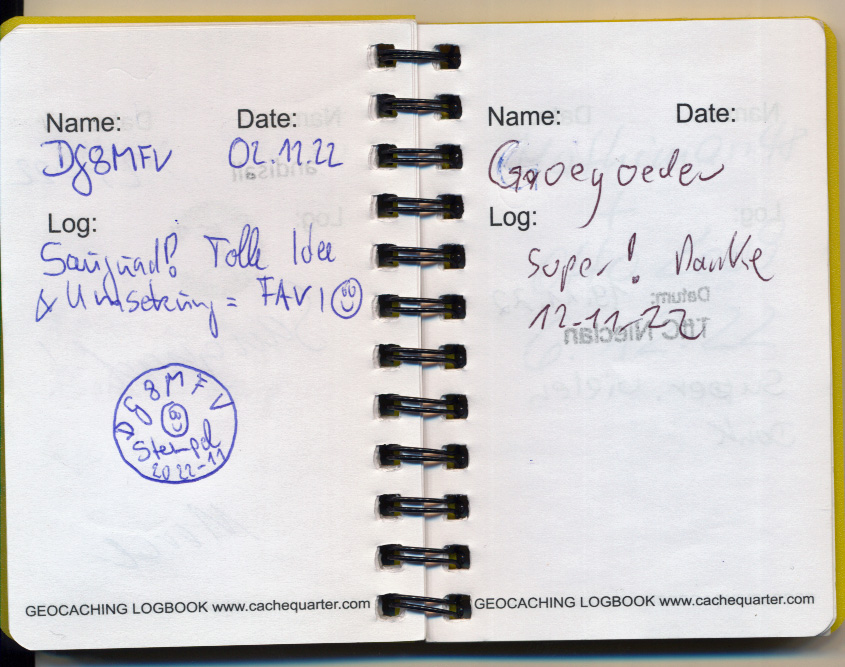 Name: Date:
DG8MFV 02.11.22
Log:
Saugnad! Tolle Idee
& Umsetzung = FAVI
DG8MFV
Stempel
2022-11
GEOCACHING LOGBOOK www.cachequarter.com
Name: Date:
Groegoeder
Log:
Super! Danke
12-11-22
Datum:
TBC Nieclan
GEOCACHING LOGBOOK www.cachequarter.com